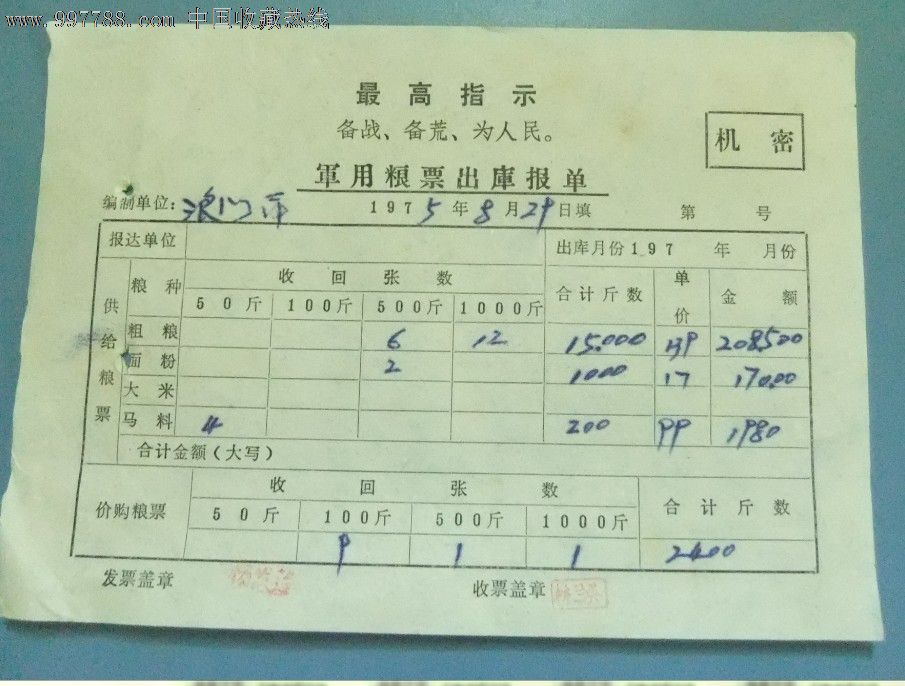 www.997788.com 中国收藏热线
最高指示
备战、备荒、为人民。
机密
軍用粮票出庫报单
编制单位： 1975年8月29日填 第 号
报达单位 出库月份197 年 月份
供给粮票
粮种 收回张数 合计斤数 单价 金额
50斤 100斤 500斤 1000斤
粗粮 6 12 15.000 139 208500
面粉 2 1000 17 17000
大米
马料 4 200 99 1980
合计金额（大写）
价购粮票 收回张数 合计斤数
50斤 100斤 500斤 1000斤
9 1 1 2400
发票盖章 收票盖章